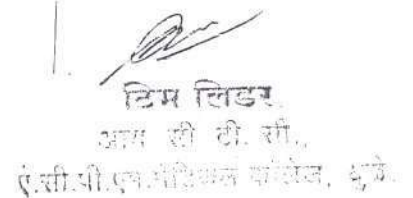 टिम लिडर
आय सी टी. सी.,
ए.सी.पी.एम.मेडिकल कॉलेज, धुळे.